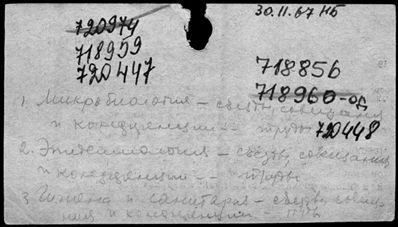 720974
718959
720447
30.11.67 НБ
718856
718960-од
720448
1. Микробиология – съезды, совещания
и конференции -- труды
2. Эпидемиология – съезды, совещания
и конференции -- труды
3. Гигиена и санитария – съезды, совеща-
ния и конференции – труды